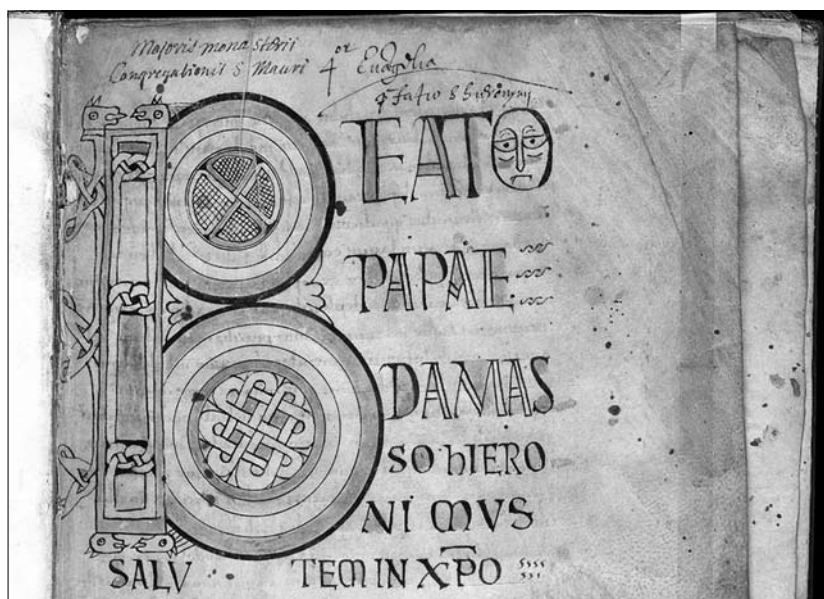 Majoris monasterii
Congregationis S Mauri 4or Evāgelia
pfatio S hieronymi
BEATO
PAPAE
DAMAS
SO hIERO
NIMVS
SALVTEM IN XP̄O